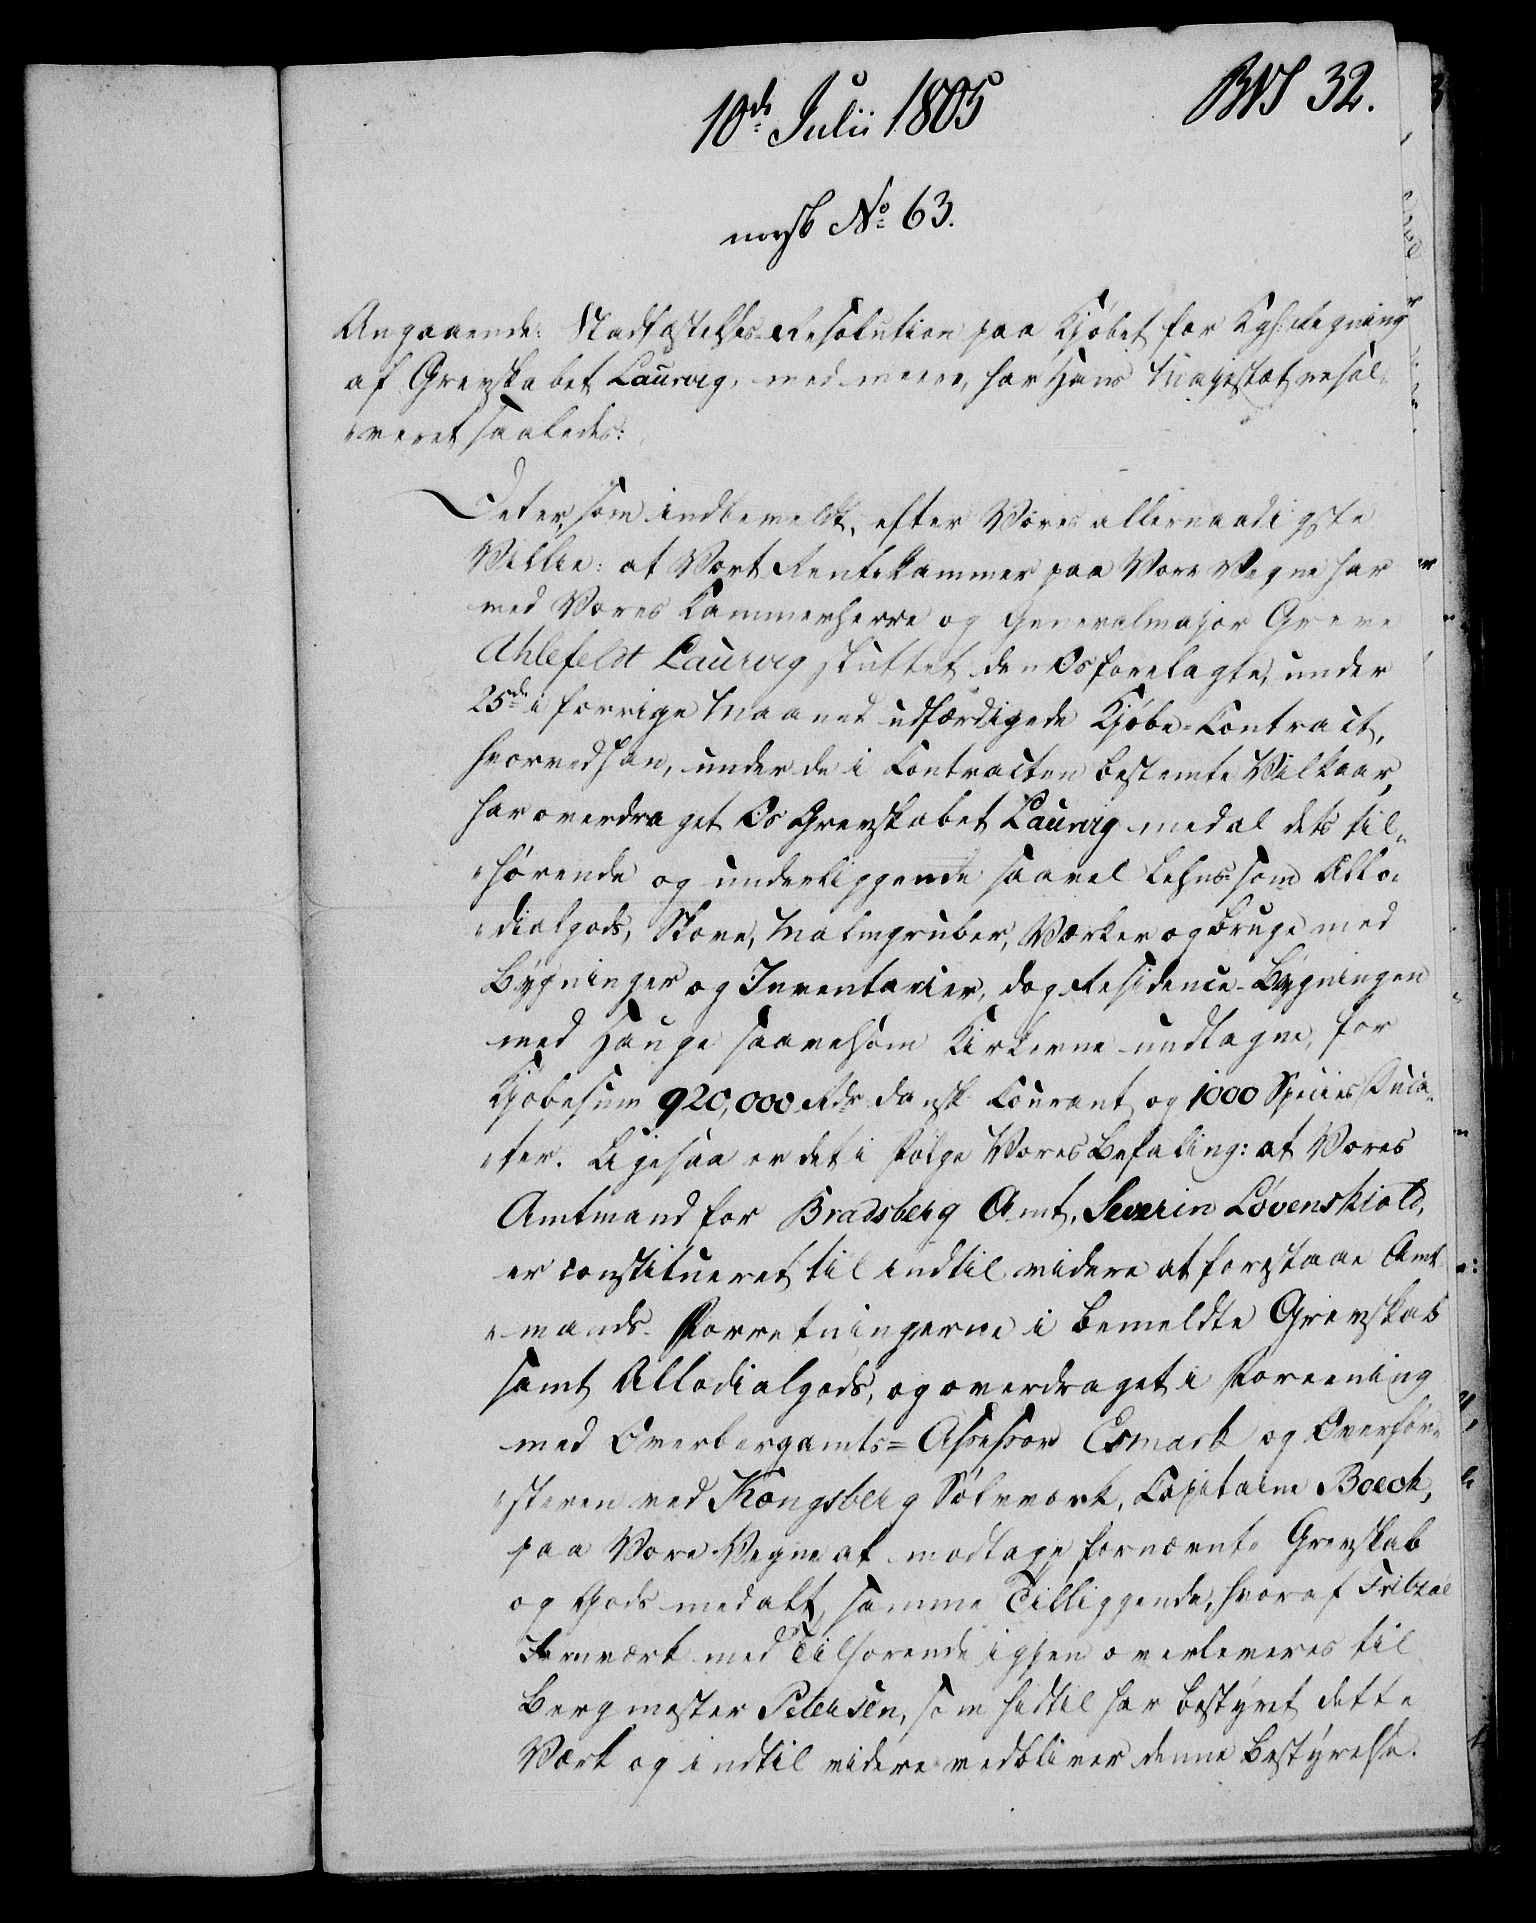 10de Julii 1805
BNS 32.
norsk No 63.
Angaaende: Stadfæstelses-Resolution paa Kjøbet for Kgl: Regning
af Grevskabet Laurvig, med meere, har Hans Majestæt resol-
veret saaledes:
Det er, som indbemeldt, efter Vores allernaadigste
Villie: at Vort Rentekammer paa Vore Vegne har
med Vores Kammerherre og Generalmajor Greve
Ahlefeldt Laurvig sluttet den Os forelagte, under
25de i forrige Maaned udfærdigede Kjøbe-Contract,
hvorved han, under de i Contracten bestemte Vilkaar,
har overdraget Os Grevskabet Laurvig med al dets til-
hørende og underliggende saavel Lehns- som Allo-
dialgods, Skove, Malmgruber, Værker og Bruge med
Bygninger og Inventarier, dog Residence-Bygningen
med Hauge saavelsom Kirkerne undtagne, for
Kjøbesum 920,000 Rdr dansk Courant og 1000 Species Duca-
ter. Ligesaa er det i Følge Vores Befaling: at Vores
Amtmand for Bradsberg Amt, Severin Løvenskiold,
er constitueret til indtil videre at forestaae Amt-
mands-Forretningerne i bemeldte Grevskab
samt Allodialgods, og overdraget i Foreening
med Overbergamts-Assessor Esmark og Overfør-
steren ved Kongsberg Sølvværk, Capitaine Boeck,
paa Vore Vegne at modtage fornævnte Grevskab
og Gods med alt samme Tilliggende, hvoraf Fritzøe
Jernværk med Tilhørende igjen overleveres til
Bergmester Petersen, som hidtil har bestyret dette
Værk og indtil videre vedbliver denne Bestyrelse.